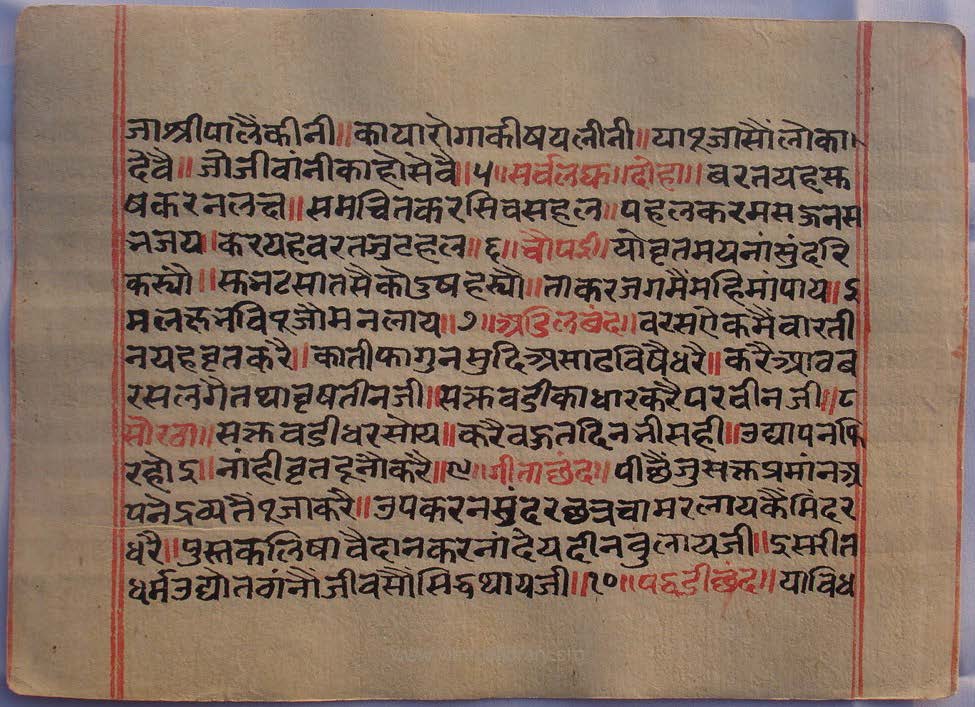 जाश्रीपालैकीनी॥कायारोगाकीषयलीनी॥यापूजासौंलोका
देवै॥जौजीवांनीकाहोसेवै॥५॥सर्वलघु॥दोहा॥बरतयह
षकरनलछ॥समचितकरसिवसहल॥पहलकरम
करयहवरतजुटहल॥६॥चौपई॥योवृतमयनांसुंदरि
कस्यौ॥सातसैकौदुषहस्यौ॥ताकरजगमैंमहिमांपाय॥
पूजौमनलाय॥७॥अडिलछंद॥वरसऐकमैंवारती
नयहवृतकरै॥कातीफागुनसुदिअसाढविषैधरै॥करैआवब
रसलगैतथावृषतीनजी॥सक्तवडीकाधारकरैपरवीनजी॥८
सोरठा॥सक्तवडीधरसोय॥करैवऊतदिनमीसही॥उद्यापनफि
रहोइ॥नांहीवृतदूनौकरै॥९॥गीताछंद॥पीछैंजुसक्तप्रमांनअ
पनेद्रव्यतैंपूजाकरै॥उपकरनसुंदरछत्रचामरलायकैंमिंदर
धरै॥पुस्तकलिषावैदानकरनांदेयदीनबुलायजी॥इसरीत
धर्मउद्योतवांनौंजीवसौंसिद्धथायजी॥१०॥पद्धडीछंद॥याविध